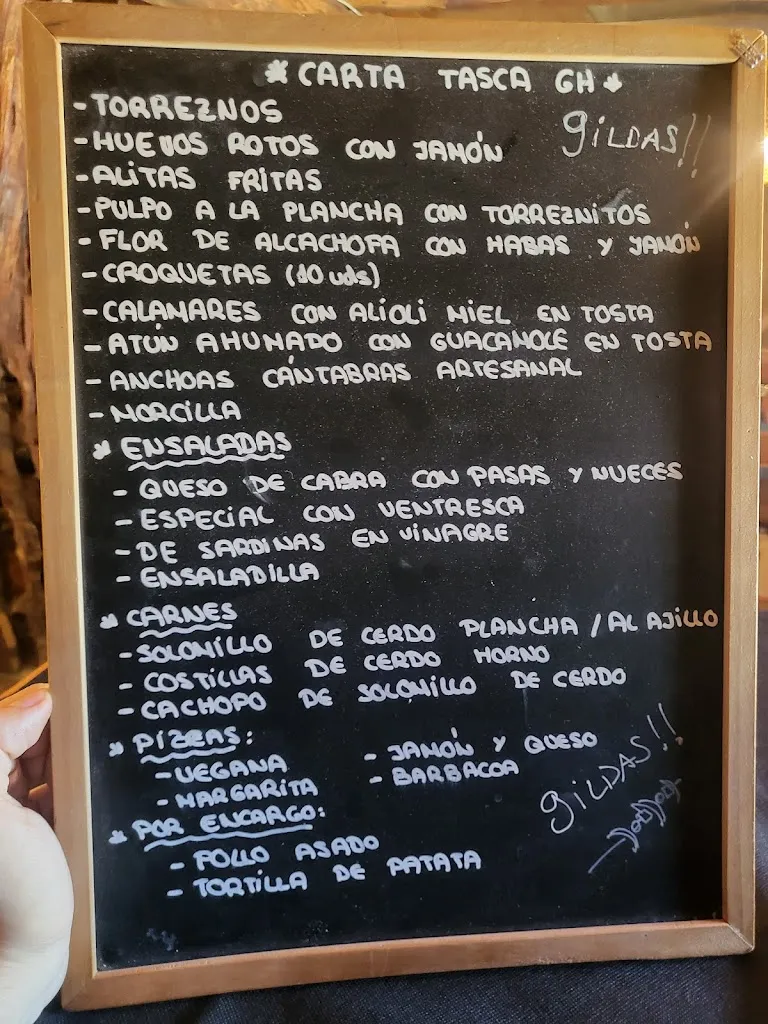 * CARTA TASCA GH *
- TORREZNOS
GILDAS!!
- HUEVOS ROTOS CON JAMÓN
- ALITAS FRITAS
- PULPO A LA PLANCHA CON TORREZNITOS
- FLOR DE ALCACHOFA CON HABAS Y JAMÓN
- CROQUETAS (10 uds)
- CALAMARES CON ALIOLI MIEL EN TOSTA
- ATÚN AHUMADO CON GUACAMOLE EN TOSTA
- ANCHOAS CÁNTABRAS ARTESANAL
- MORCILLA
* ENSALADAS
- QUESO DE CABRA CON PASAS Y NUECES
- ESPECIAL CON VENTRESCA
- DE SARDINAS EN VINAGRE
- ENSALADILLA
* CARNES
- SOLOMILLO DE CERDO PLANCHA / AL AJILLO
- COSTILLAS DE CERDO HORNO
- CACHOPO DE SOLOMILLO DE CERDO
* PIZZAS:
- VEGANA
- MARGARITA
- JAMÓN Y QUESO
- BARBACOA
GILDAS!!
* POR ENCARGO:
- POLLO ASADO
- TORTILLA DE PATATA